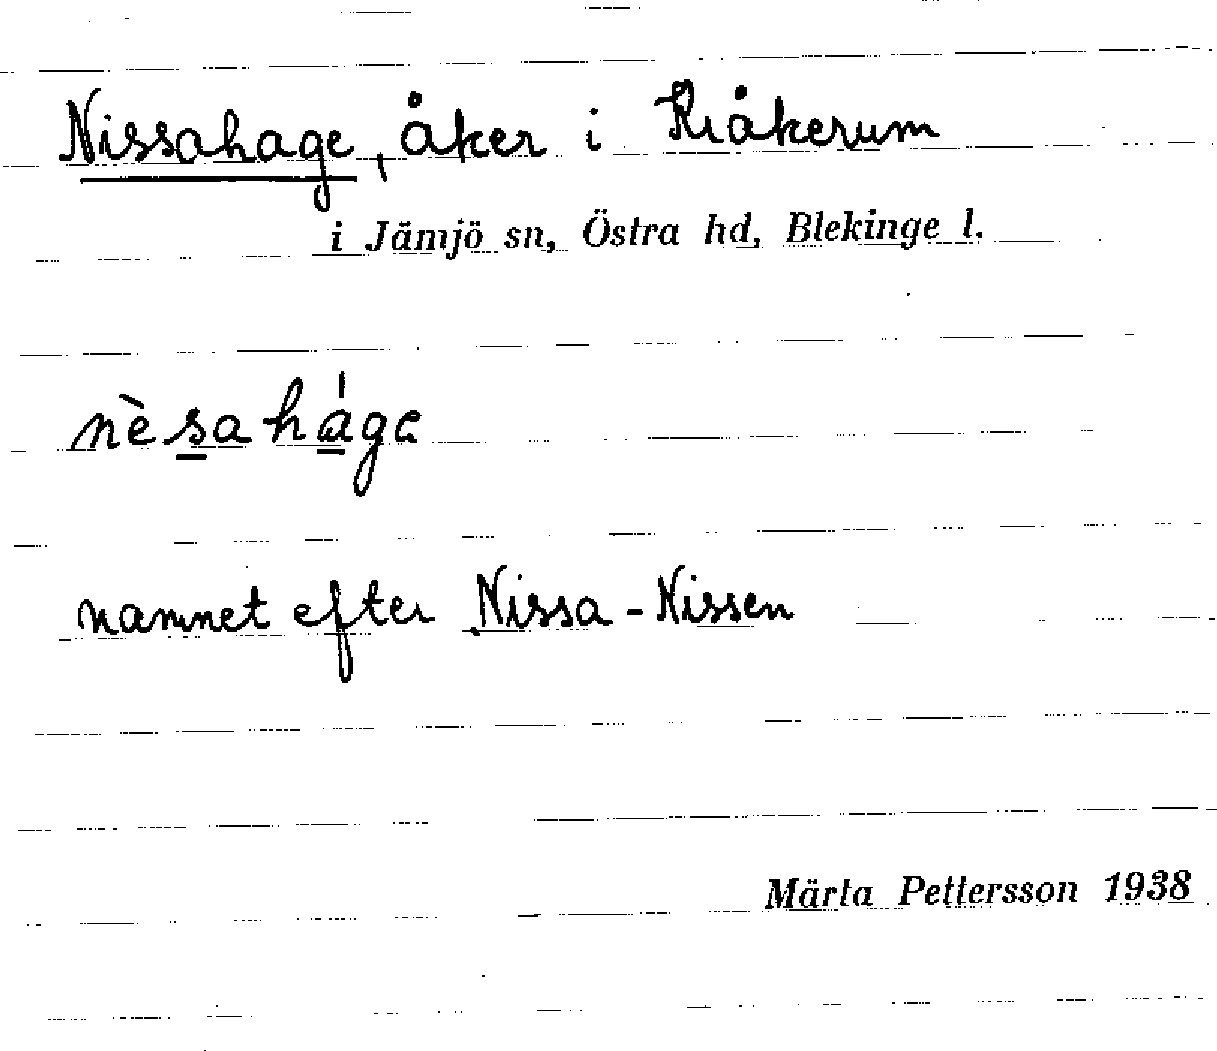 Nissahage, åker i Kråkerum
i Jämjö sn, Östra hd, Blekinge l.
nèsahága
namnet efter Nissa-Nissen
Märta Pettersson 1938